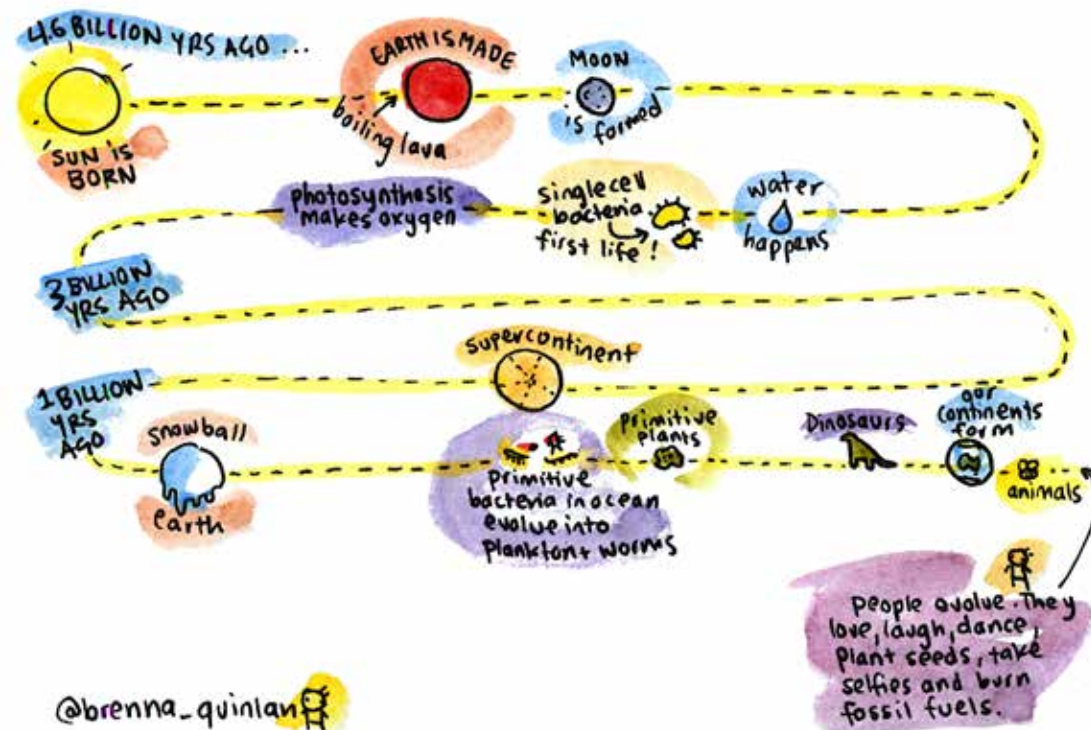 4.6 BILLION YRS AGO ...
SUN IS
BORN
EARTH IS MADE
boiling lava
MOON
is formed
water
happens
single cell
bacteria
first life!
photosynthesis
makes oxygen
3 BILLION
YRS AGO
supercontinent
1 BILLION
YRS
AGO
snowball
earth
primitive
bacteria in ocean
evolve into
plankton + worms
primitive
plants
Dinosaurs
our
continents
form
animals
people evolve. They
love, laugh, dance,
plant seeds, take
selfies and burn
fossil fuels.
@brenna_quinlan